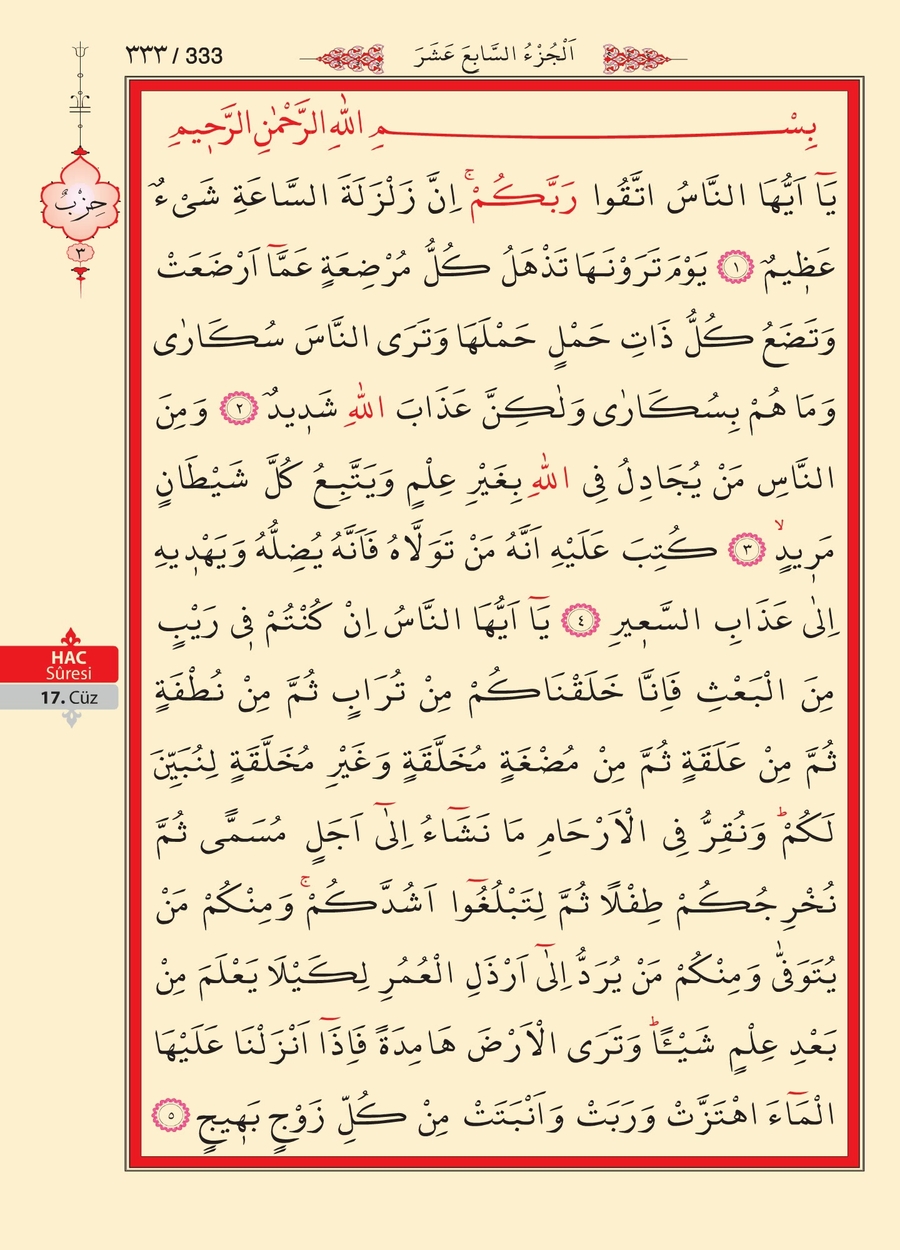 ٣٣٣ / 333
اَلْجُزْءُ السَّابِعَ عَشَرَ
حِزْبٌ
٣
بِسْمِ اللهِ الرَّحْمٰنِ الرَّحٖيمِ
يَٓا اَيُّهَا النَّاسُ اتَّقُوا رَبَّكُمْۚ اِنَّ زَلْزَلَةَ السَّاعَةِ شَىْءٌ
عَظٖيمٌ ١ يَوْمَ تَرَوْنَهَا تَذْهَلُ كُلُّ مُرْضِعَةٍ عَمَّٓا اَرْضَعَتْ
وَتَضَعُ كُلُّ ذَاتِ حَمْلٍ حَمْلَهَا وَتَرَى النَّاسَ سُكَارٰى
وَمَا هُمْ بِسُكَارٰى وَلٰكِنَّ عَذَابَ اللهِ شَدٖيدٌ ٢ وَمِنَ
النَّاسِ مَنْ يُجَادِلُ فِى اللهِ بِغَيْرِ عِلْمٍ وَيَتَّبِعُ كُلَّ شَيْطَانٍ
مَرٖيدٍۙ ٣ كُتِبَ عَلَيْهِ اَنَّهُ مَنْ تَوَلَّاهُ فَاَنَّهُ يُضِلُّهُ وَيَهْدٖيهِ
اِلٰى عَذَابِ السَّعٖيرِ ٤ يَٓا اَيُّهَا النَّاسُ اِنْ كُنْتُمْ فٖى رَيْبٍ
مِنَ الْبَعْثِ فَاِنَّا خَلَقْنَاكُمْ مِنْ تُرَابٍ ثُمَّ مِنْ نُطْفَةٍ
ثُمَّ مِنْ عَلَقَةٍ ثُمَّ مِنْ مُضْغَةٍ مُخَلَّقَةٍ وَغَيْرِ مُخَلَّقَةٍ لِنُبَيِّنَ
لَكُمْؕ وَنُقِرُّ فِى الْاَرْحَامِ مَا نَشَٓاءُ اِلٰٓى اَجَلٍ مُسَمًّى ثُمَّ
نُخْرِجُكُمْ طِفْلًا ثُمَّ لِتَبْلُغُٓوا اَشُدَّكُمْۚ وَمِنْكُمْ مَنْ
يُتَوَفّٰى وَمِنْكُمْ مَنْ يُرَدُّ اِلٰٓى اَرْذَلِ الْعُمُرِ لِكَيْلَا يَعْلَمَ مِنْ
بَعْدِ عِلْمٍ شَيْـًٔاؕ وَتَرَى الْاَرْضَ هَامِدَةً فَاِذَٓا اَنْزَلْنَا عَلَيْهَا
الْمَٓاءَ اهْتَزَّتْ وَرَبَتْ وَاَنْبَتَتْ مِنْ كُلِّ زَوْجٍ بَهٖيجٍ ٥
HAC
Sûresi
17. Cüz